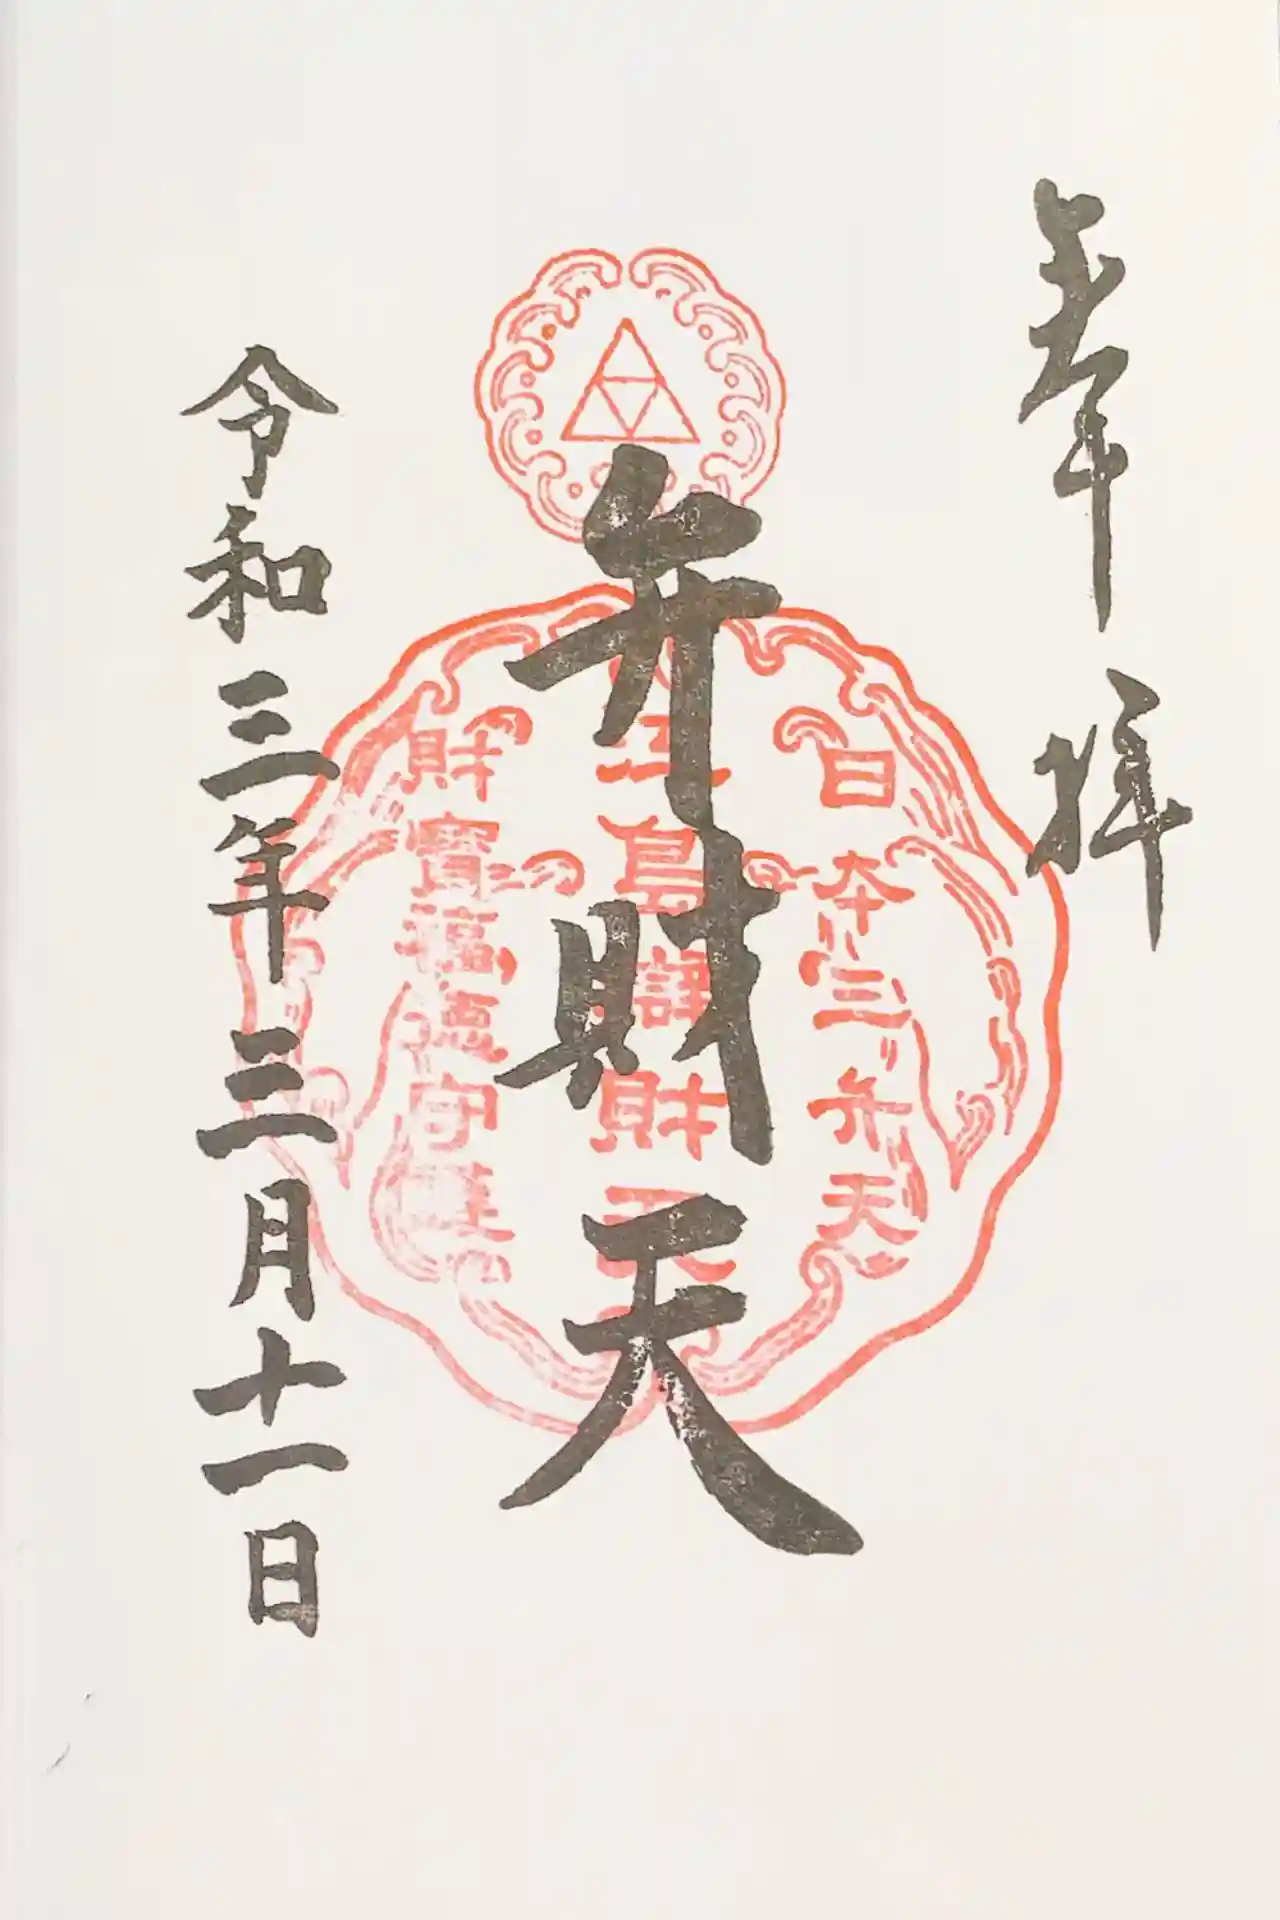 奉拝
日本三弁天
江島辨財天
弁財天
財寳福徳守護
令和三年三月十一日